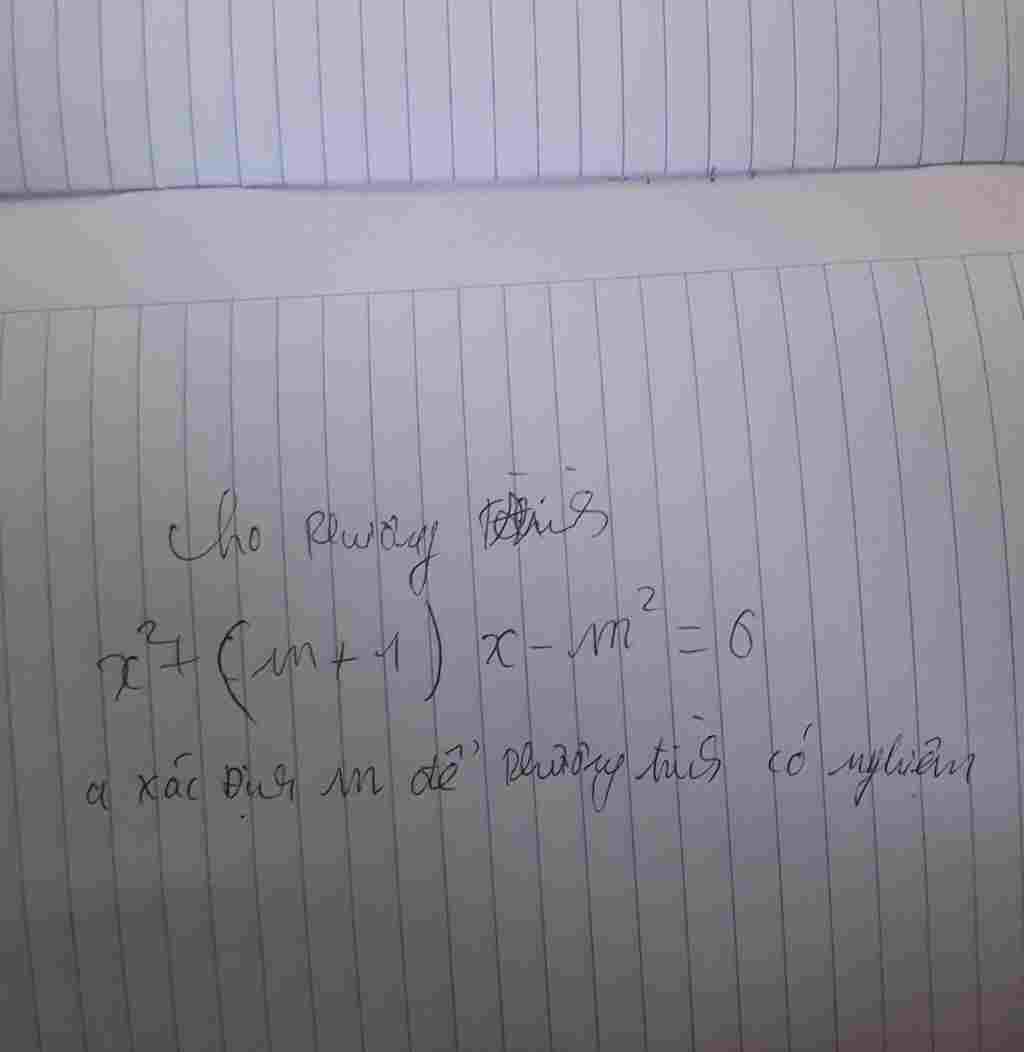 Cho phương trình
x² + (m + 1) x - m² = 6
a xác định m để phương trình có nghiệm